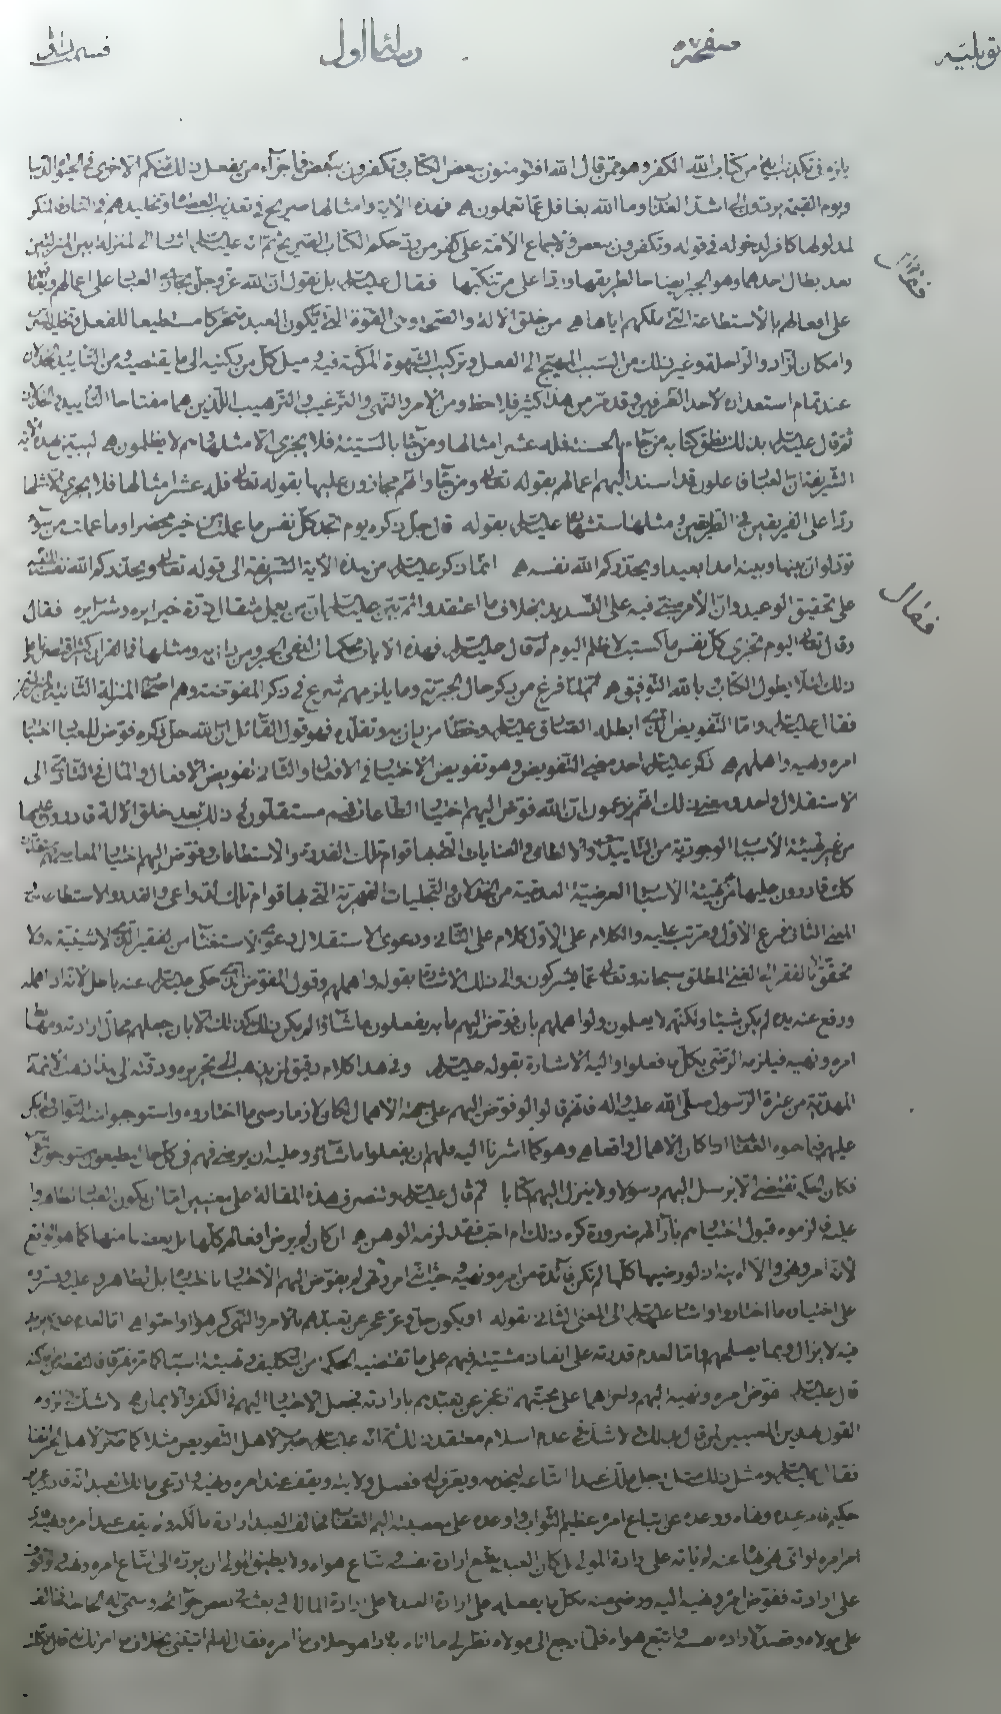 توبلیه صفحه ٥٧ رسالة اول
يلزمه في تكذيب آية من كتاب الله الكفر وهو ممن قال الله افتؤمنون ببعض الكتاب وتكفرون ببعض فما جزآء من يفعل ذلك منكم الا خزي في الحيوة الدنيا
ويوم القيمة يردون الى اشد العذاب وما الله بغافل عما تعملون فهذه الاية وامثالها صريح في تعذيب العصاة وتخليدهم في النار فالمنكر
لمدلولها كافر لدخوله في قوله وتكفرون ببعض باجماع الامة على كفر من حكم الكتاب الصريح ثم انه عليه السلام اشار الى المنزلة بين المنزلتين
بعد بطال احدهما وهو الجبر ايضاحا لطريقها وردا على من تنكبها فقال عليه السلام بل نقول ان الله عز وجل يجازى العباد على اعمالهم
على افعالهم بالاستطاعة التي ملكهم اياها هي من خلق الالة والصحة وهى القوة التي يكون العبد متحركا مستطيعا للفعل وتخلية السرب
وامكان الزاد والراحلة وغير ذلك من السبب المهيج الى الفعل وتركيب الشهوة المركبة فيه وميل كل من الى ما يقتضيه من التاييد
عند تمام استعداده لاحد الطرفين وقد مر من هذا كثير فلاحظ ومن الامر والنهى والترغيب والترهيب اللذين هما مفتاحا التاييد
ثم قال عليه السلام بذلك نطق كتابه من جاء بالحسنة فله عشر امثالها ومن جا بالسيئة فلا يجزى الا مثلها وهم لا يظلمون
الشريفة ان العباد فاعلون قد اسند اليهم اعمالهم بقوله تعالى ومن جا وانهم مجازون عليها بقوله تعالى فله عشر امثالها فلا يجزى الا مثلها
ردا على الفريقين في الطريقين ومثلها استشهاد عليه السلام بقوله قال جل ذكره يوم تجد كل نفس ما عملت من خير محضرا وما عملت من سوء
تود لو ان بينها وبينه امدا بعيدا ويحذركم الله نفسه انما ذكر عليه السلام من هذه الاية الشريفة الى قوله تعالى ويحذركم الله نفسه
على تحقيق الوعيد وان الامر فيه على التسديد بخلاف ما اعتقدوا ثم بين عليه السلام بان من يعمل مثقال ذرة خيرا يره وشرا يره فقال
وقال تعالى اليوم تجزى كل نفس ما كسبت لا ظلم اليوم ثم قال عليه السلام فهذه الايات محكمات تنفى الجبر ومن دان به ومثلها في القران كثير اقتصرنا من
ذلك لئلا يطول الكتاب بالله التوفيق ثم لما فرغ من ذكر حال الجبرية وما يلزمهم شرع في ذكر المفوضة وهم اصحاب المنزلة الثانية
فقال عليه السلام واما التفويض الذى ابطله الصادق عليه السلام وخطأ من دان به وتقلده فهو قول القائل ان الله جل ذكره فوض للعباد اختيار
امره ونهيه واهملهم ذكر عليه السلام احد معنيى التفويض وهو تفويض الاختيار في الافعال والثانى تفويض الافعال والمال في الثانى الى
الاستقلال واحد ومعنى ذلك انهم يزعمون ان الله فوض اليهم اختيار الطاعات فهم مستقلون في ذلك بعد خلق الالة قادرون عليها
من غير تهيئة الاسباب الوجودية من التاييدات والالطاف والعنايات بها قوام تلك القدرة والاستطاعات وفوض اليهم اختيار المعاصى
كك قادرون عليها من تهيئة الاسباب العرضية العدمية من الخذلان والتجليات القهرية التى بها قوام تلك الدواعى والقدر والاستطاعات
المعنى الثانى فرع الاول مترتب عليه والكلام على الاول كلام على الثانى ودعوى الاستقلال دعوى الاستغنا من الفقير الذى لا شيئية له ولا
تحقق الا بالفقر الى الغنى المطلق سبحانه وتعالى عما يشركون والى ذلك الاشارة بقوله واهملهم وقول المفوض الذى حكى عليه السلام عنه باطل لانه اذا اهمله
ورفع عنه يده لم يكن شيئا ولكنهم لا يعلمون ولو اهملهم بان فوض اليهم ما به يفعلون ما شاؤا لم يكن ذلك كذلك الا بان جعلهم محال ارادته ومهابط
امره ونهيه فيلزمه الرضى بكل ما فعلوا واليه الاشارة بقوله عليه السلام وفي هذا كلام دقيق لمن يذهب الى تحريره ودقته الى هذا ذهبت الائمة
المهدية من عترة الرسول صلى الله عليه واله فانهم قالوا لو فوض اليهم على جهة الاهمال لكان لازما رضى ما اختاروه واستوجبوا منه الثواب ولم يكن
عليهم فيما جنوه العقاب اذا كان الاهمال واقعا وهو كما اشرنا اليه فلهم ان يفعلوا ما شاؤا وعليه ان يرضى فهم في كل حال مطيعون مستوجبون
فكان الحكم يقتضى الا يرسل اليهم رسولا ولا ينزل اليهم كتابا ثم قال عليه السلام وتنصرف هذه المقالة على معنيين اما ان يكون العباد تظاهروا
عليه فالزموه قبول اختيارهم بآرائهم ضرورة كره ذلك ام احب فقد لزمه الوهن ان كان لم يرض افعالهم كلها بل بعضا منها كما هو الواقع
لانه امر ونهى والا لو رضيها كلها لم تكن فائدة من امره ونهيه حيث امر ونهى لم يفوض اليهم الاختيار
على اختيار ما اختاروا واشار عليه السلام الى المعنى الثانى بقوله او يكون جل وعز عجز عن تعبدهم بالامر والنهى كرهوا او احبوا
فيه لا يزال وبما يصلحهم واما لعدم قدرته على انفاذ مشيئته فيهم على ما تقتضيه الحكمة من التكليف في تهيئة اسبابه كما مر
قال عليه السلام ففوض امره ونهيه اليهم واجراهما على محبتهم اذ عجز عن تعبدهم بارادته فجعل الاختيار اليهم في الكفر والايمان لا شك في لزوم
القول بهذين المعنيين لمن قال بذلك ولا شك في عدم اسلام معتقد ذلك ثم انه عليه السلام ضرب لاهل التفويض مثلا كما ضرب لاهل الجبر
فقال عليه السلام ومثل ذلك مثل رجل ملك عبدا ابتاعه ليخدمه ويعرف له فضل ولايته ويقف عند امره ونهيه وادعى مالك العبد انه قادر
حكيم فامر عبده ونهاه ووعده على اتباع امره عظيم الثواب واوعده على معصيته اليم العقاب فخالف العبد ارادة مالكه ولم يقف عند امره ونهيه
امر امره او اى نهى نهاه عنه لم ياته على ارادة المولى بل كان العبد يتبع ارادة نفسه واتباع هواه ولا يطيق المولى ان يرده الى اتباع امره ونهيه والوقوف
على ارادته ففوض امره ونهيه اليه ورضى منه بكل ما يفعله على ارادة العبد لا على ارادة المالك وبعثه في بعض حوائجه وسمى له الحاجة فخالف
على مولاه وقصد لارادة نفسه واتبع هواه فلما رجع الى مولاه نظر الى ما اتاه به فاذا هو خلاف ما امره فقال له لم اتيتنى بخلاف ما امرتك
فقال
فقال